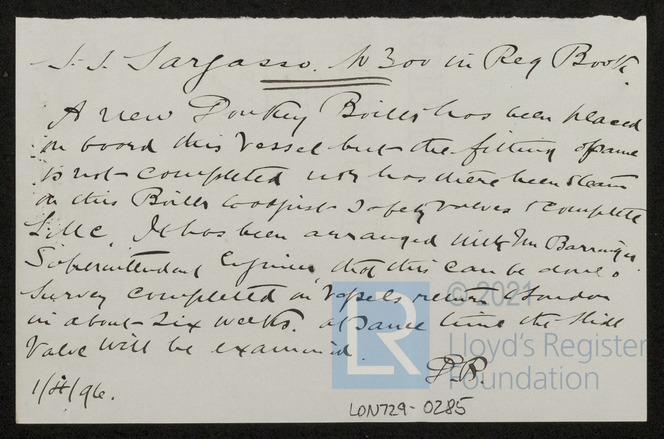 S.S. Sargasso. No 300 in Reg Book.
A new Donkey Boiler has been placed
on board this Vessel but the fitting of same
is not completed nor has there been steam
on this Boiler to adjust Safety valves & complete
LMC. It has been arranged with Mr Barringer
Superintendent Engineer, that this can be done &
Survey completed on Vessels return to London
in about six weeks. at same time the slide
Valve will be examined.
P.R.
1/4/96.
LON729-0285
© 2021
LR
Lloyd's Register
Foundation